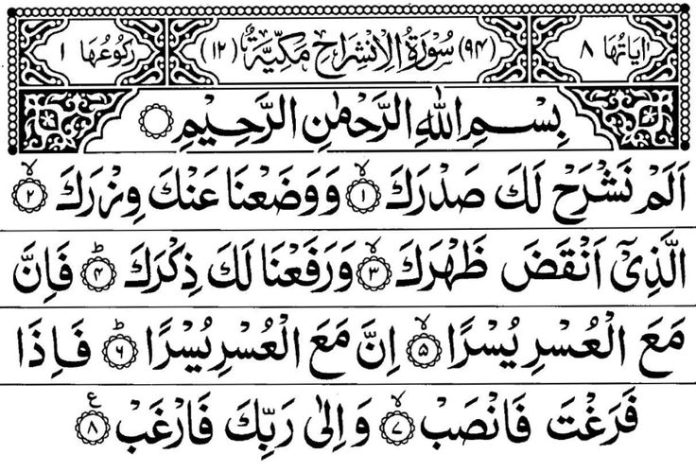 اٰيَاتُهَا ٨ (٩٤) سُوْرَةُ الْاِنْشِرَاحِ مَكِّيَّةٌ (١٢) رُكُوْعُهَا ١
بِسْمِ اللّٰهِ الرَّحْمٰنِ الرَّحِيْمِ
اَلَمْ نَشْرَحْ لَكَ صَدْرَكَ ۙ‏﴿١﴾ وَوَضَعْنَا عَنْكَ وِزْرَكَ ۙ‏﴿٢﴾
الَّذِىْٓ اَنْقَضَ ظَهْرَكَ ۙ‏﴿٣﴾ وَرَفَعْنَا لَكَ ذِكْرَكَ ؕ‏﴿٤﴾ فَاِنَّ
مَعَ الْعُسْرِ يُسْرًا ۙ‏﴿٥﴾ اِنَّ مَعَ الْعُسْرِ يُسْرًا ؕ‏﴿٦﴾ فَاِذَا
فَرَغْتَ فَانْصَبْ ۙ‏﴿٧﴾ وَاِلٰى رَبِّكَ فَارْغَبْ ع‏﴿٨﴾